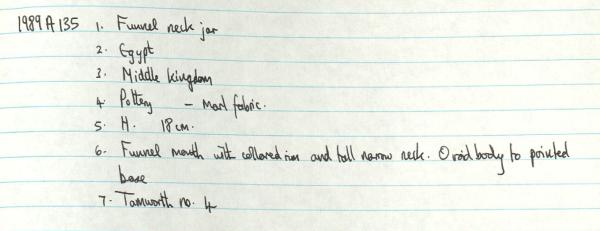 1989 A 135 1. Funnel neck jar
2. Egypt
3. Middle kingdom
4. Pottery - Marl fabric.
5. H. 18 cm.
6. Funnel mouth with collared rim and tall narrow neck. Ovoid body to pointed
base
7. Tamworth no. 4